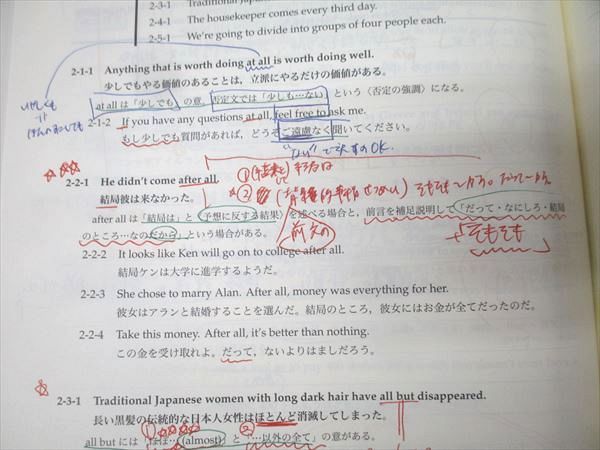 2-3-1 Traditional Japan
2-4-1 The housekeeper comes every third day.
2-5-1 We're going to divide into groups of four people each.
2-1-1 Anything that is worth doing at all is worth doing well.
少しでもやる価値のあることは，立派にやるだけの価値がある。
at all は「少しでも」の意，否定文では「少しも…ない」という〈否定の強調〉になる。
2-1-2 If you have any questions at all, feel free to ask me.
もし少しでも質問があれば，どうぞご遠慮なく聞いてください。
"ない" で示すのOK.
① (結果)
2-2-1 He didn't come after all.
② そもそも〜から。だって〜から。
結局彼は来なかった。
after all は「結局は」と〈予想に反する結果〉を述べる場合と，前言を補足説明して「だって・なにしろ・結局
のところ…なのだから」という場合がある。
前文の
「そもそも
2-2-2 It looks like Ken will go on to college after all.
結局ケンは大学に進学するようだ。
2-2-3 She chose to marry Alan. After all, money was everything for her.
彼女はアランと結婚することを選んだ。結局のところ，彼女にはお金が全てだったのだ。
2-2-4 Take this money. After all, it's better than nothing.
この金を受け取れよ。だって，ないよりはましだろう。
2-3-1 Traditional Japanese women with long dark hair have all but disappeared.
長い黒髪の伝統的な日本人女性はほとんど消滅してしまった。
① ②
all but には「ほぼ…(almost)」と「…以外の全て」の意がある。